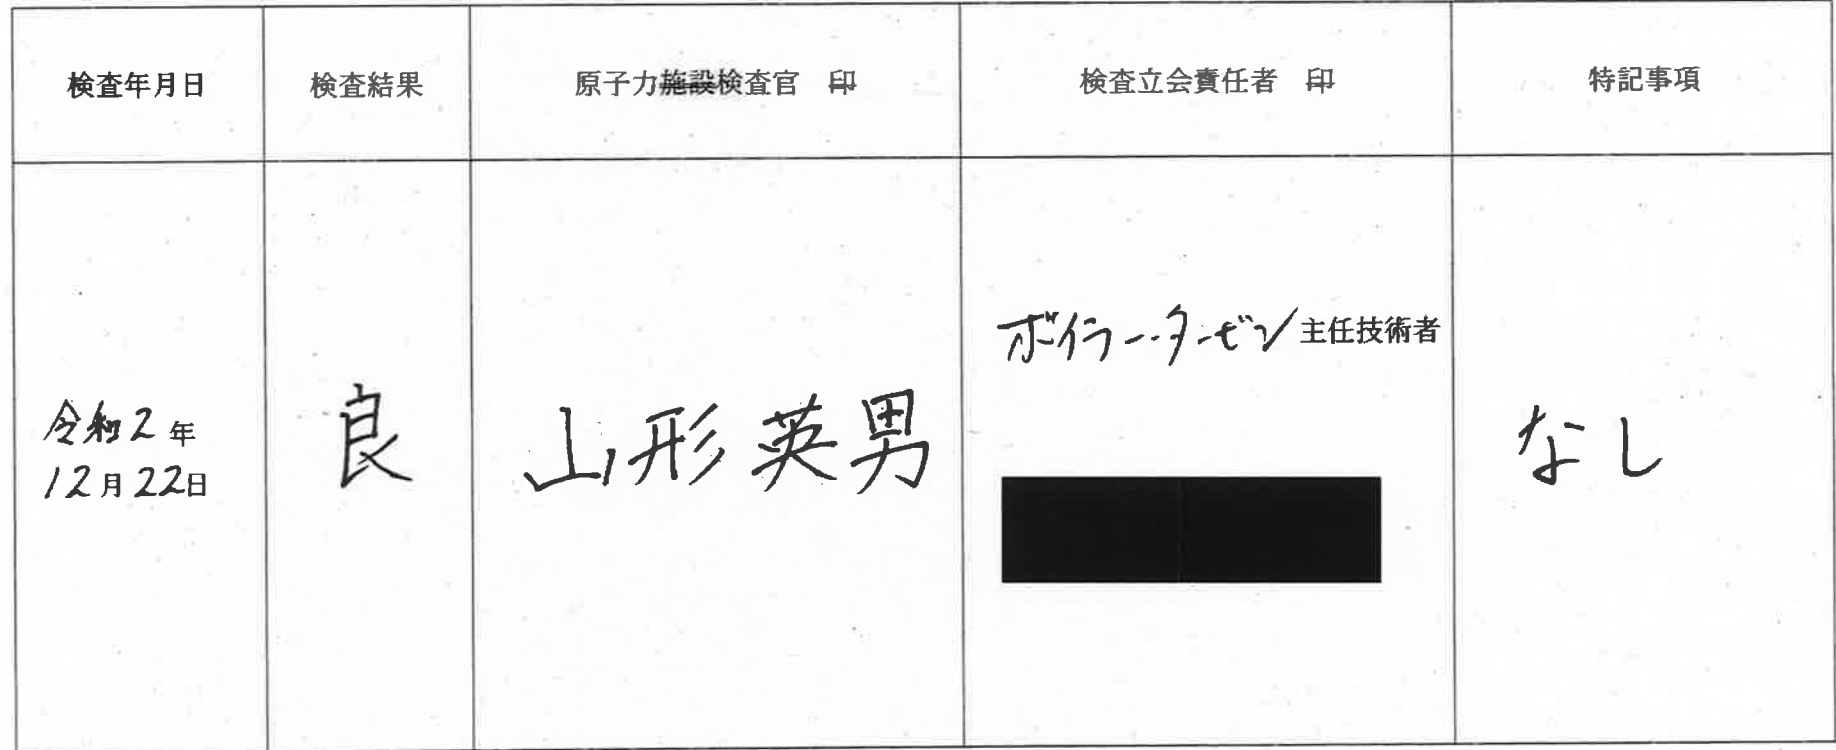 検査年月日
検査結果
原子力施設検査官 印
検査立会責任者 印
特記事項
令和2年
12月22日
良
山形英男
ボイラー・タービン主任技術者
なし